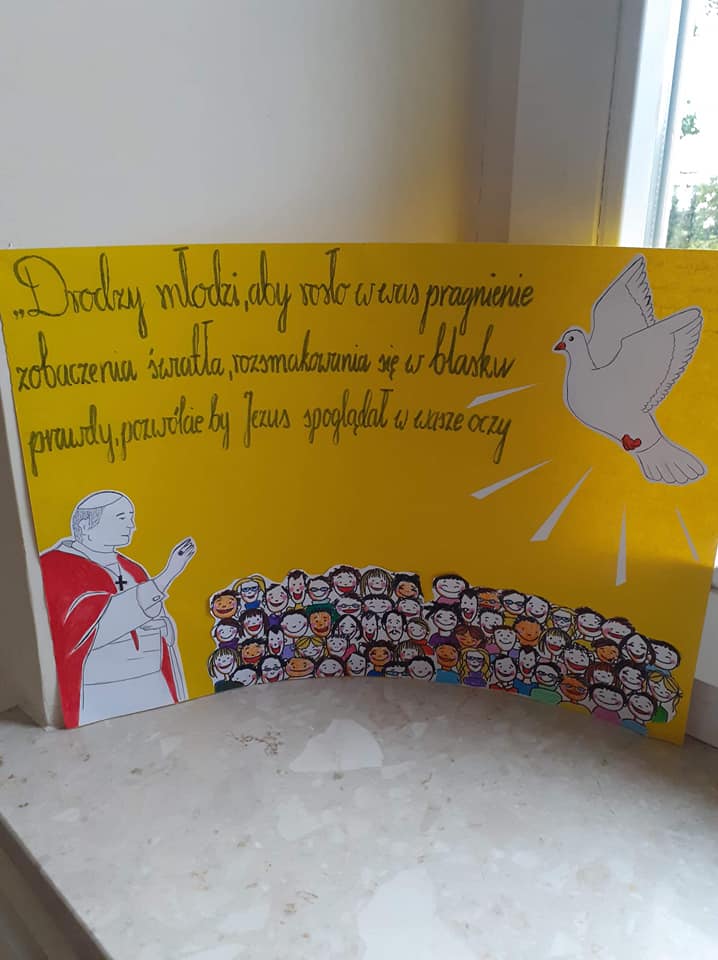 „Drodzy młodzi, aby rosło w was pragnienie
zobaczenia światła, rozsmakowania się w blasku
prawdy, pozwólcie by Jezus spoglądał w wasze oczy